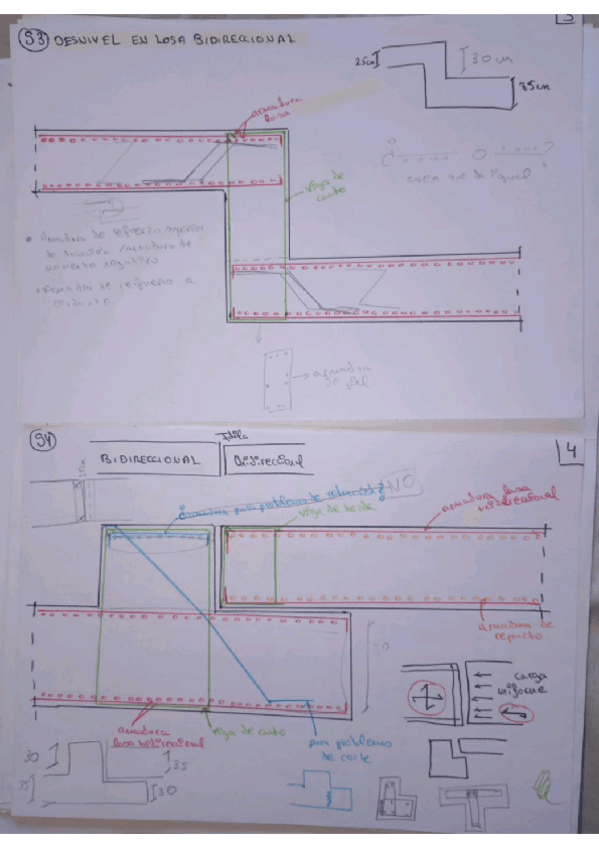 3
S3 DESNIVEL EN LOSA BIDIRECCIONAL
25cm
30cm
35cm
armadura
losa
viga de
canto
• Armadura de refuerzo superior
de tracción / armadura de
momento negativo
• Armadura de refuerzo a
cortante.
armadura
de piel
S4
4
BIDIRECCIONAL
Unidireccional
NO
viga de borde
armadura losa
unidireccional
armadura de
reparto
30
carga
uniforme
armadura
losa bidireccional
viga de canto
para problemas
de corte
30
35
35
30